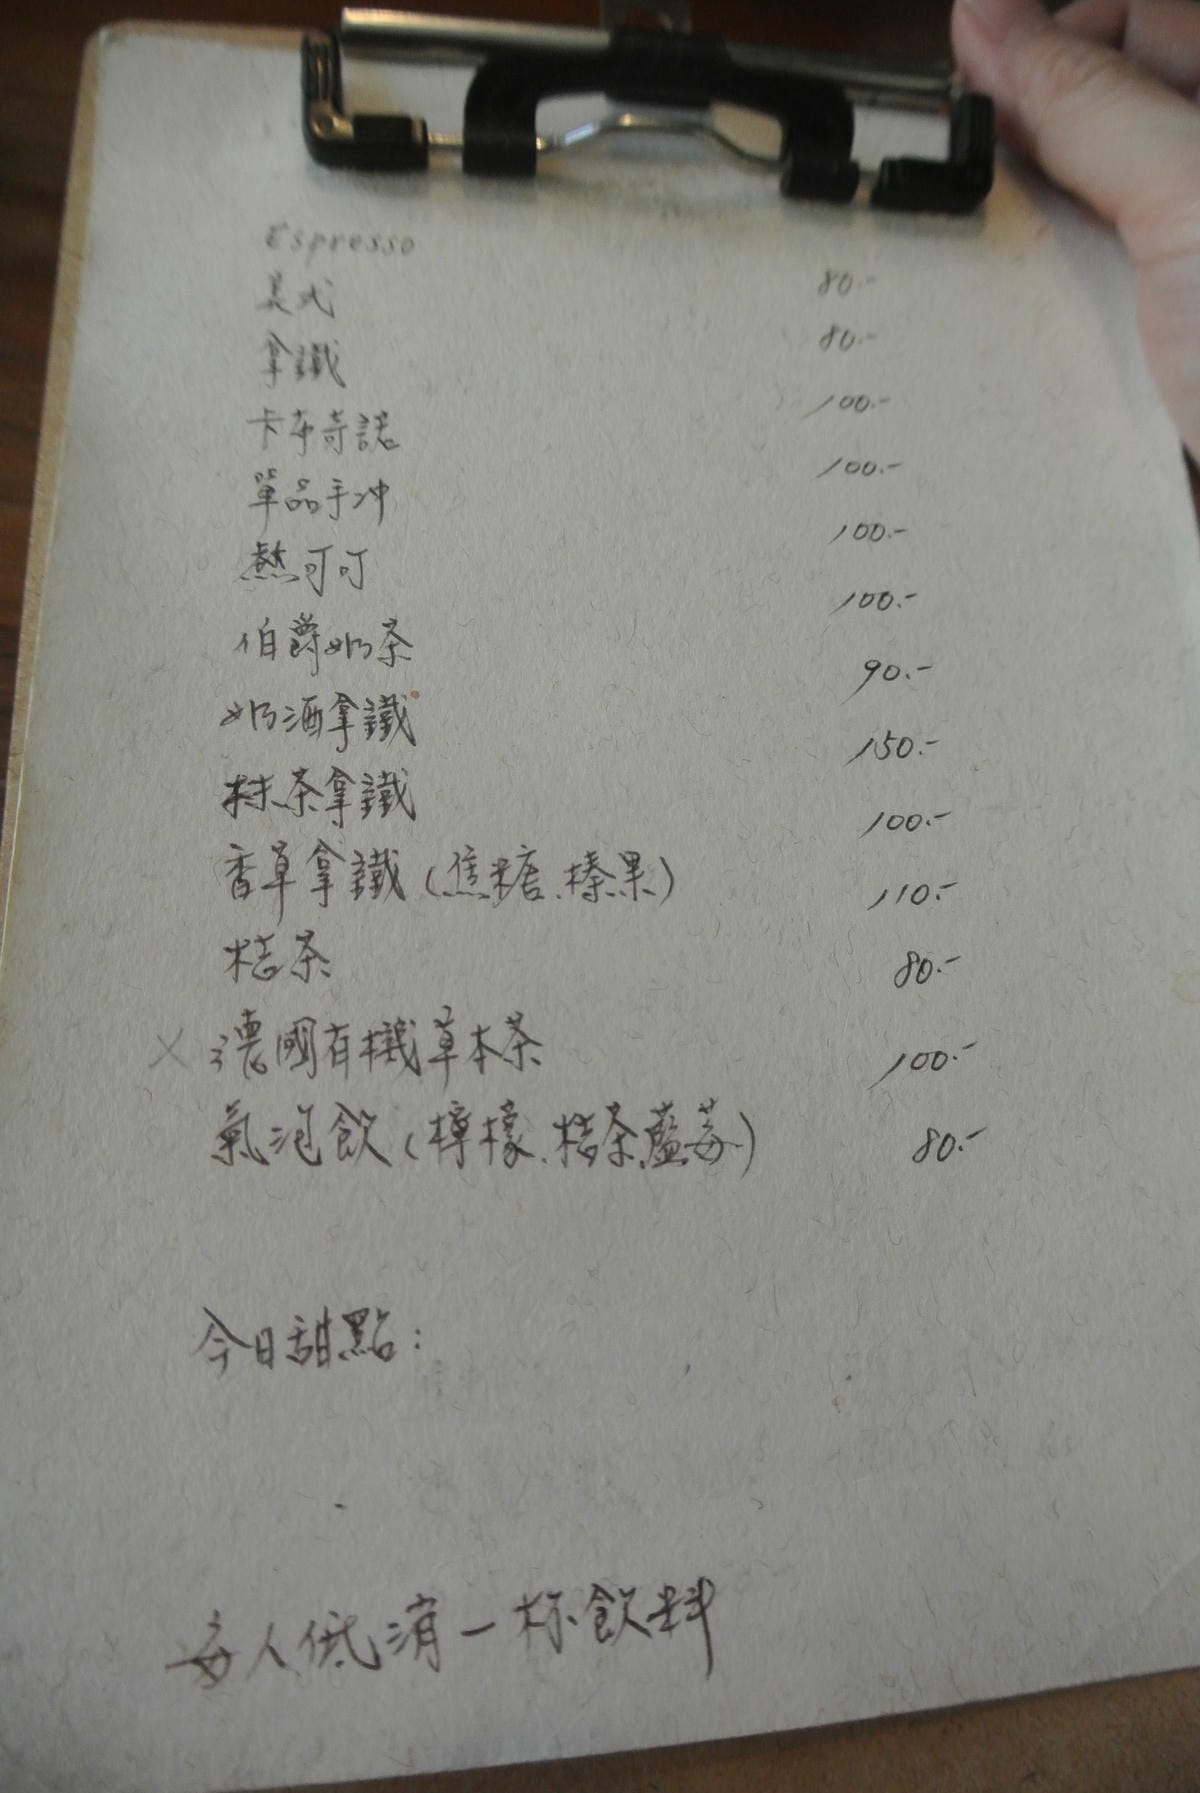 Espresso 80.-
美式 80.-
拿鐵 100.-
卡布奇諾 100.-
單品手冲 100.-
熱可可 100.-
伯爵奶茶 90.-
奶酒拿鐵 150.-
抹茶拿鐵 100.-
香草拿鐵(焦糖、榛果) 110.-
桔茶 80.-
X 德國有機草本茶 100.-
氣泡飲(檸檬、桔茶、藍莓) 80.-
今日甜點:
每人低消一杯飲料